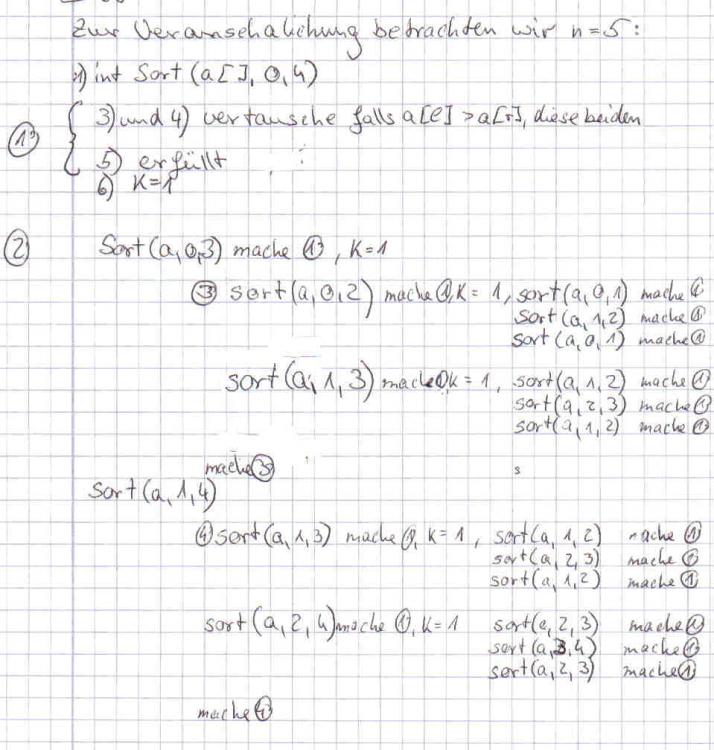 Zur Veranschalichung betrachten wir n=5:
1) int Sort (a[], 0,4)
① 3) und 4) vertausche falls a[l] > a[r], diese beiden
5) erfüllt
6) K=1
② Sort(a,0,3) mache ①, K=1
③ sort(a,0,2) mache ①, K = 1, sort(a,0,1) mache ①
sort (a,1,2) mache ①
sort (a,0,1) mache ①
sort(a,1,3) mache ① k = 1, sort(a,1,2) mache ①
sort(a,2,3) mache ①
sort(a,1,2) mache ①
mache ③ s
sort(a,1,4)
④ sort(a,1,3) mache ①, K = 1, sort(a,1,2) mache ①
sort(a,2,3) mache ①
sort(a,1,2) mache ①
sort(a,2,4) mache ①, K=1 sort(a,2,3) mache ①
sort(a,3,4) mache ①
sort(a,2,3) mache ①
mache ④